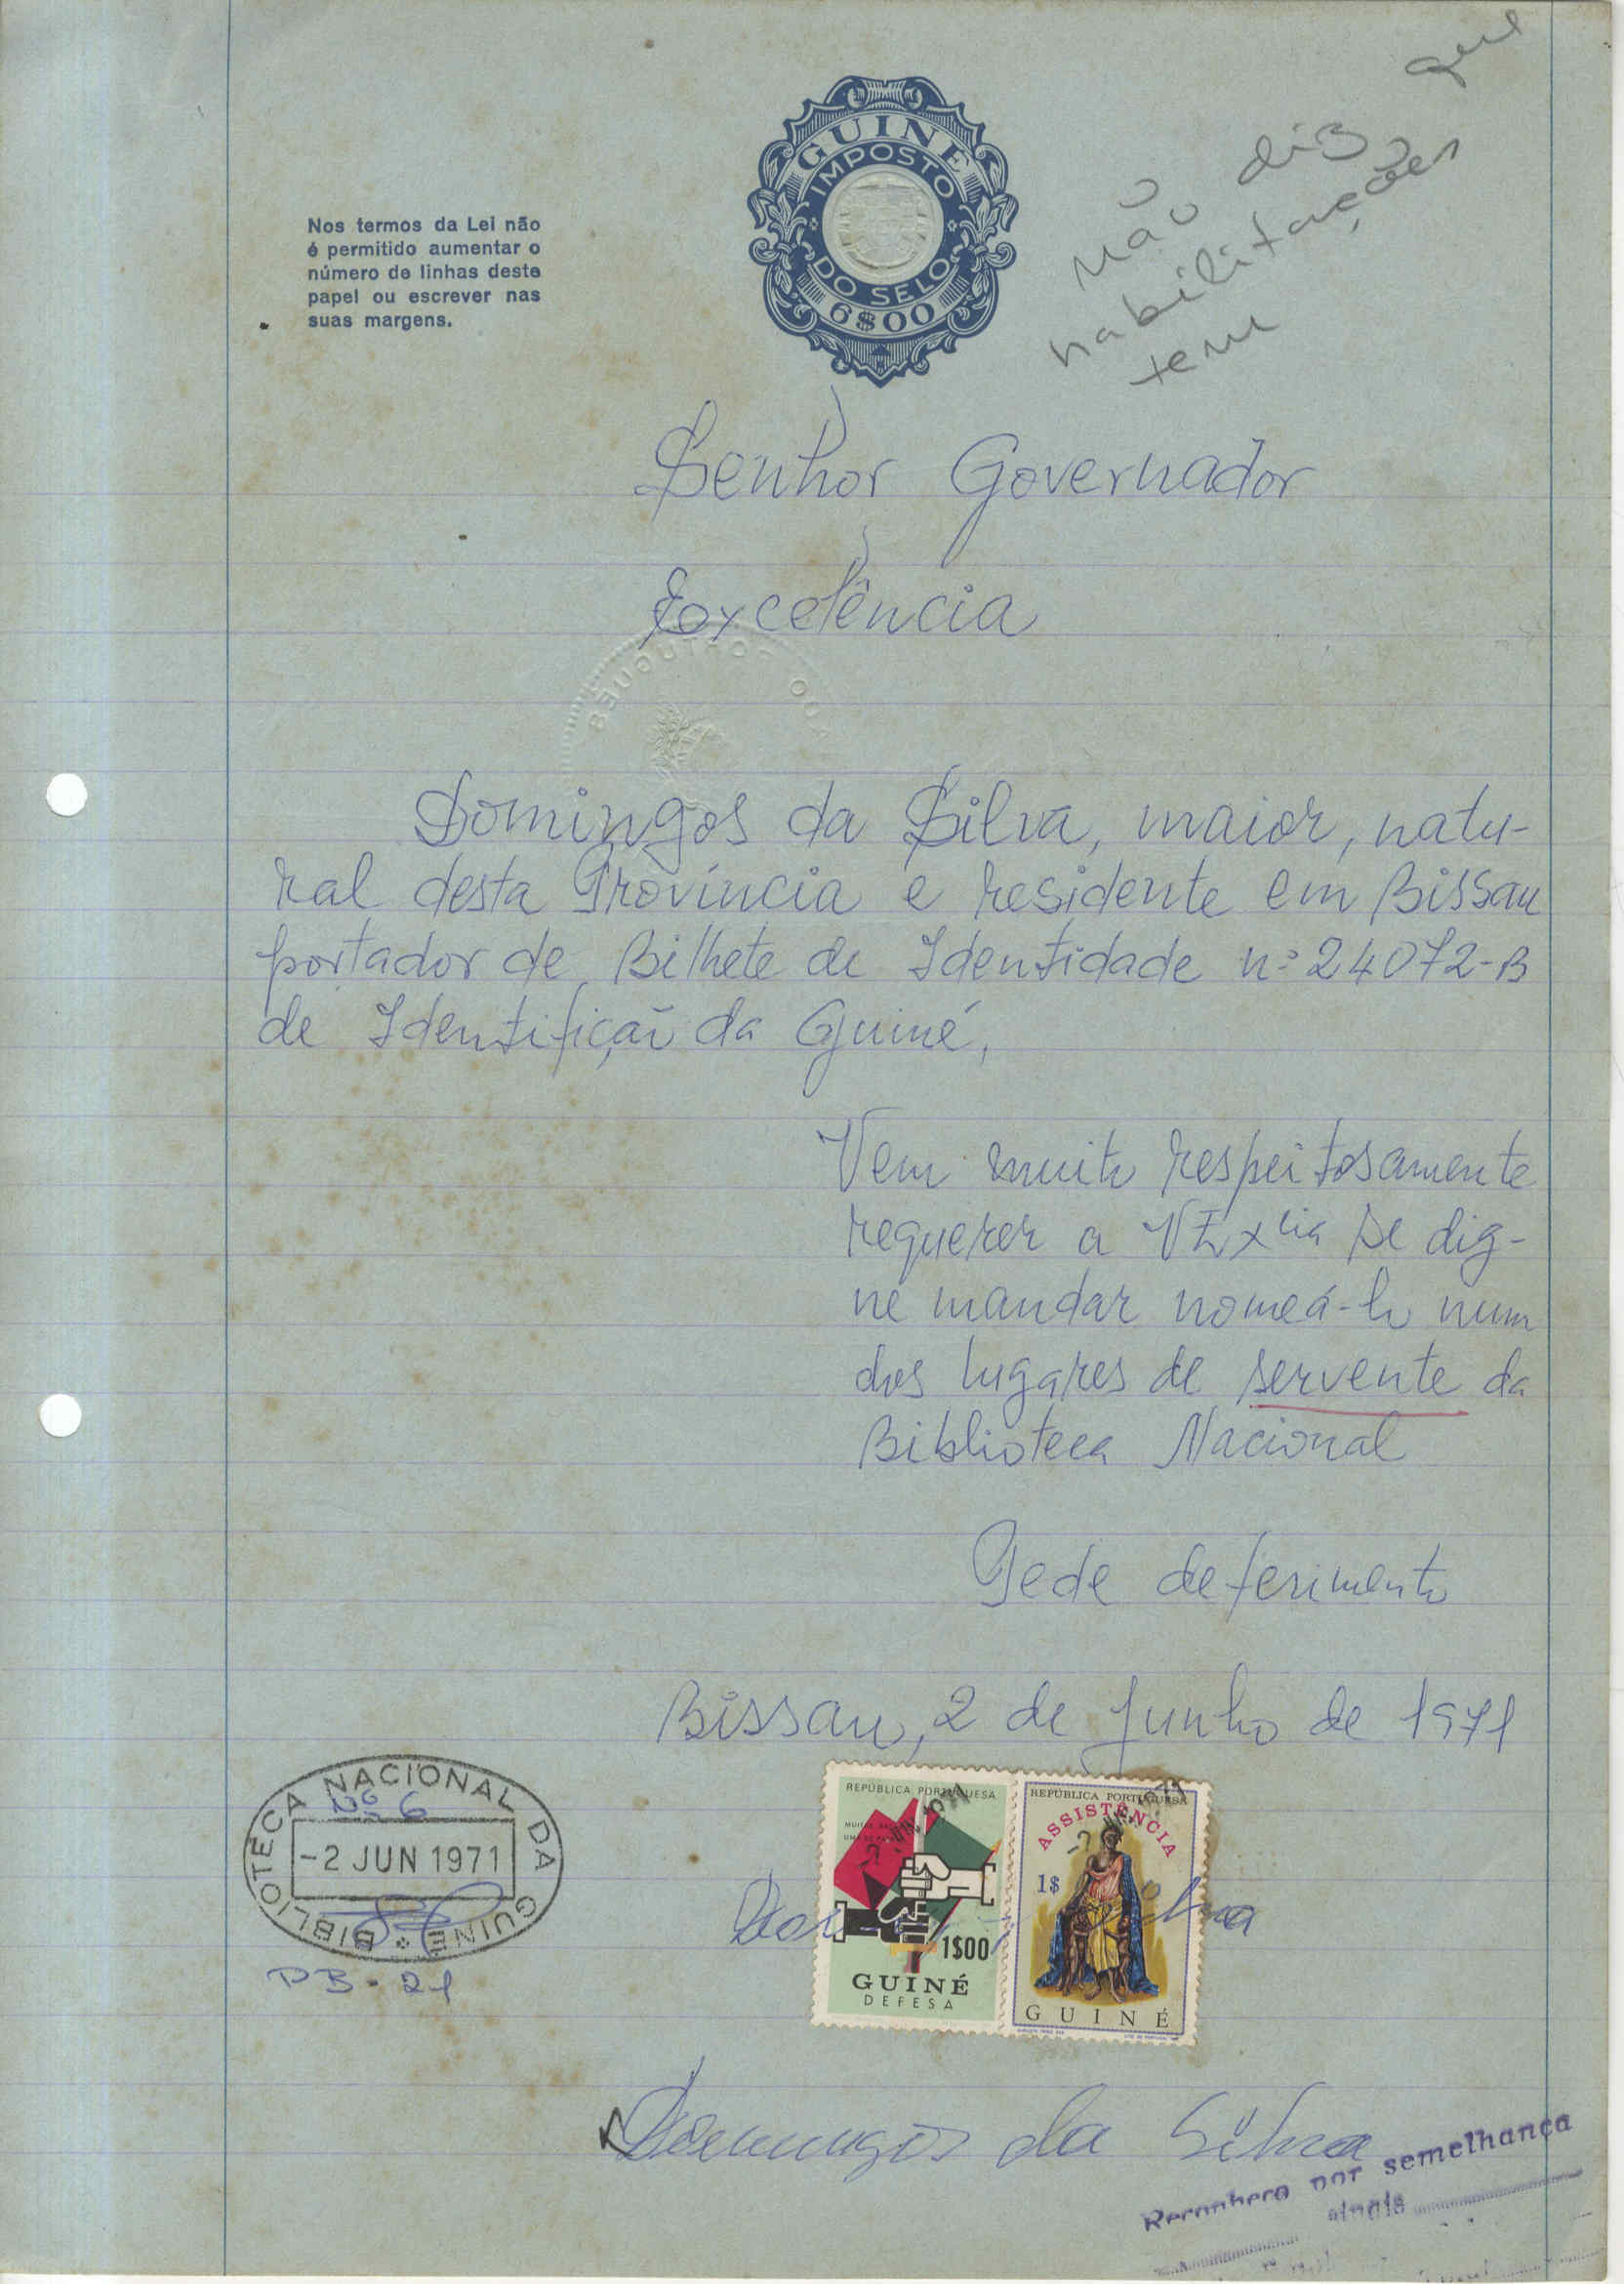 Não diz que
habilitações
tem
GUINÉ
IMPOSTO
DO SELO
6$00
Nos termos da Lei não
é permitido aumentar o
número de linhas deste
papel ou escrever nas
suas margens.
Senhor Governador
Excelência
Domingos da Silva, maior, natu-
ral desta Província e residente em Bissau
portador de Bilhete de Identidade nº 24072-B
de Identificaçaõ da Guiné,
Vem muito respeitosamente
requerer a V Excia se dig-
ne mandar nomeá-lo num
dos lugares de servente da
Biblioteca Nacional
Pede deferimento
Bissau, 2 de Junho de 1971
BIBLIOTECA NACIONAL DA GUINÉ
Nº 6
-2 JUN 1971
PB-21
REPÚBLICA PORTUGUESA
1$00
GUINÉ
DEFESA
REPÚBLICA PORTUGUESA
ASSISTÊNCIA
1$
GUINÉ
Domingos da Silva
Reconheço por semelhança